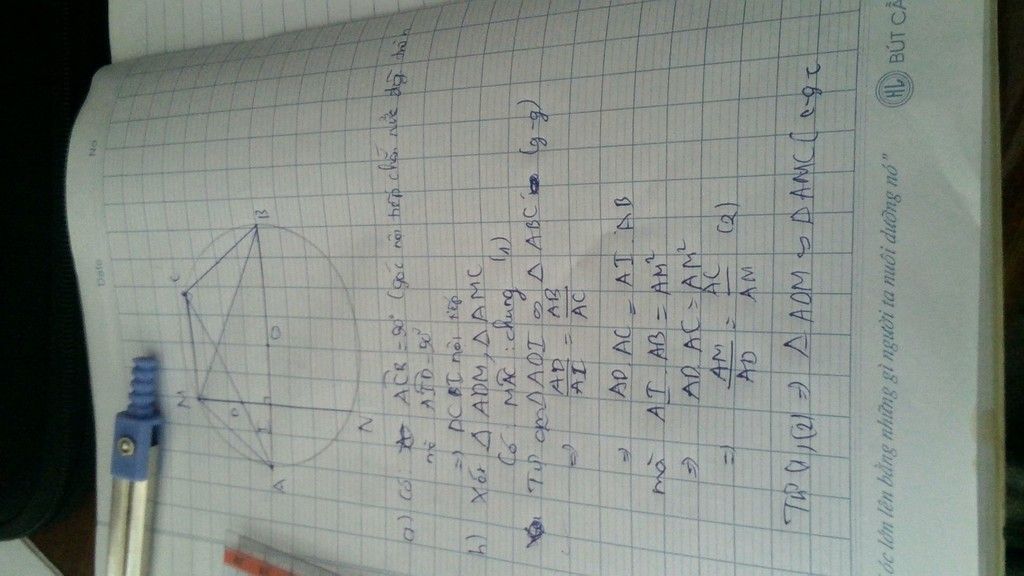 No
Date
M
C
B
D
I
O
A
N
a) Có ACB = 90° (góc nội tiếp chắn nửa đg tròn
mà AID = 90°
=> DCBI nội tiếp
b) Xét △ ADM, △ AMC
Có MAC : chung (1)
△ ADI ∽ △ ABC (g-g)
=> AD/AI = AB/AC
=> AD.AC = AI.AB
mà AI.AB = AM²
=> AD.AC = AM²
=> AM/AD = AC/AM (2)
Từ (1), (2) => △ ADM ∽ △ AMC ( c-g-c
ớc lên bằng những gì người ta nuôi dưỡng nó"
HL BÚT CẦ